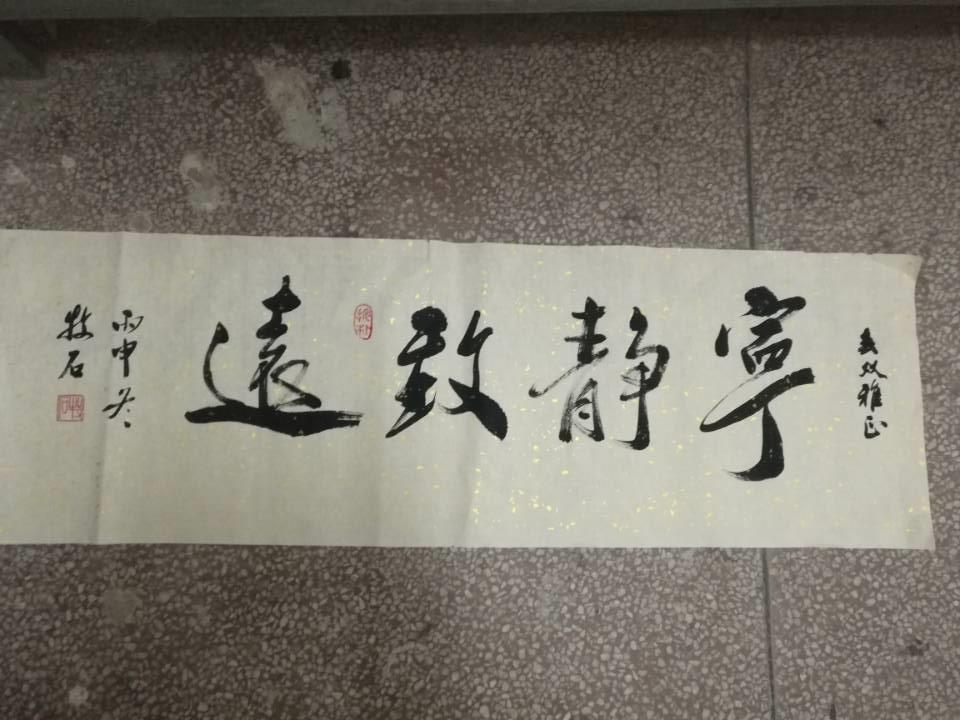 雅正
寧静致遠
丙申冬
牧石